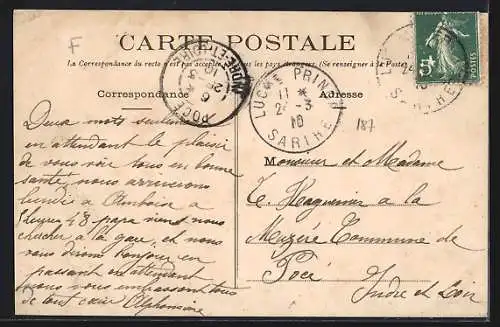 F
CARTE POSTALE
La Correspondance du recto n'est pas acceptée tous les pays étrangers. (Se renseigner à la Poste)
Correspondance
Adresse
POCÉ
INDRE-ET-LOIRE
LUCHÉ PRIN
11 *
2 -3
10
SARTHE
SARTHE
187
Deux mots seulement
en attendant le plaisir
de vous voir tous en bonne
santé, nous arriverons
lundi à Amboise à
papa vient nous
chercher à la gare, et nous
vous dirons bonjour en
passant en attendant
nous vous embrassons tous
de tout cœur Alphonsine
Monsieur et Madame
E. Haguenier a la
Commune de
Pocé
Indre et Loir